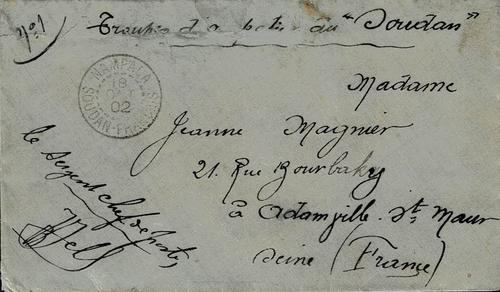 N°1
Troupes d'occupation du "Soudan"
NAMPALA
18
02
SOUDAN-FRANÇAIS
Madame
Jeanne Magnier
21. Rue Bourbaky
à Adamville. St Maur
Seine (France)
le Sergent chef de poste,